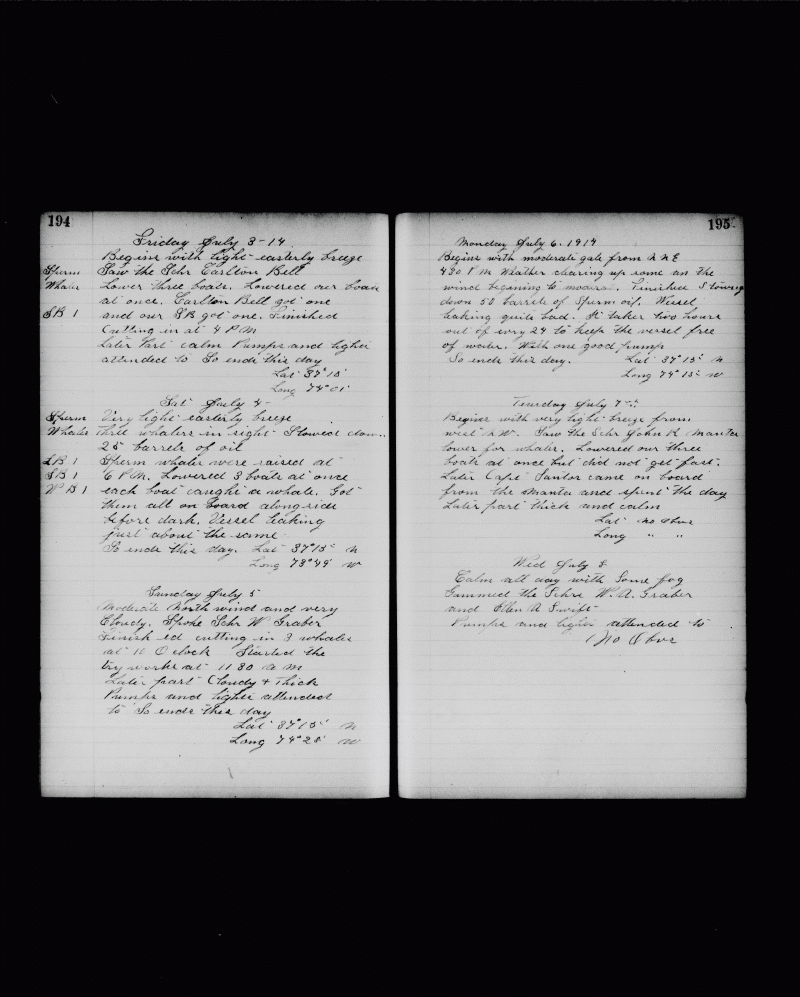 194
Friday July 3-14
Begins with light easterly breeze
Sperm Saw the Schr Carlton Bell
Whales Lower three boats. Lowered our boats
at once. Carlton Bell got one
SB 1 and our SB got one. Finished
Cutting in at 4 P M
Later Part calm Pumps and lights
attended to So ends this day
Lat 37° 15'
Long 74° 01'
Sat July 4-
Sperm Very light easterly breeze
Whales three whalers in sight Stowed down
25 barrels of oil
LB 1 Sperm whales were raised at
SB 1 6 P.M. Lowered 3 boats at once
W B 1 each boat caught a whale. Got
them all on board alongside
before dark. Vessel leaking
just about the same
So ends this day. Lat 37° 15' N
Long 73° 49' W
Sunday July 5
Moderate North wind and very
Cloudy. Spoke Schr W Graber
Finish ed cutting in 3 whales
at 10 O clock Started the
try works at 11 30 A M
Later part Cloudy + Thick
Pumps and lights attended
to So ends this day
Lat 37° 15' N
Long 74° 28' W
195
Monday July 6. 1914
Begins with moderate gale from N N E
4 30 P M Weather clearing up some an the
wind begining to Finished Stowing
down 50 barrels of Sperm oil. Vessel
leaking quite bad. It takes two hours
out of evry 24 to keep the vessel free
of water. With one good pump
So ends this day. Lat 37° 15' N
Long 74° 15' W
Tuesday July 7
Begins with very light breeze from
west N W. Saw the Schr John R Manta
lower for whales. Lowered our three
boats at once but did not get fast.
Later Capt Santos came on board
from the Manta and spent the day
Later part thick and calm
Lat no Obse
Long " "
Wed July 8
Calm all day with Some fog
Gammed the Schrs W. A. Graber
and Ellen A Swift
Pumps and lights attended to
No Obse